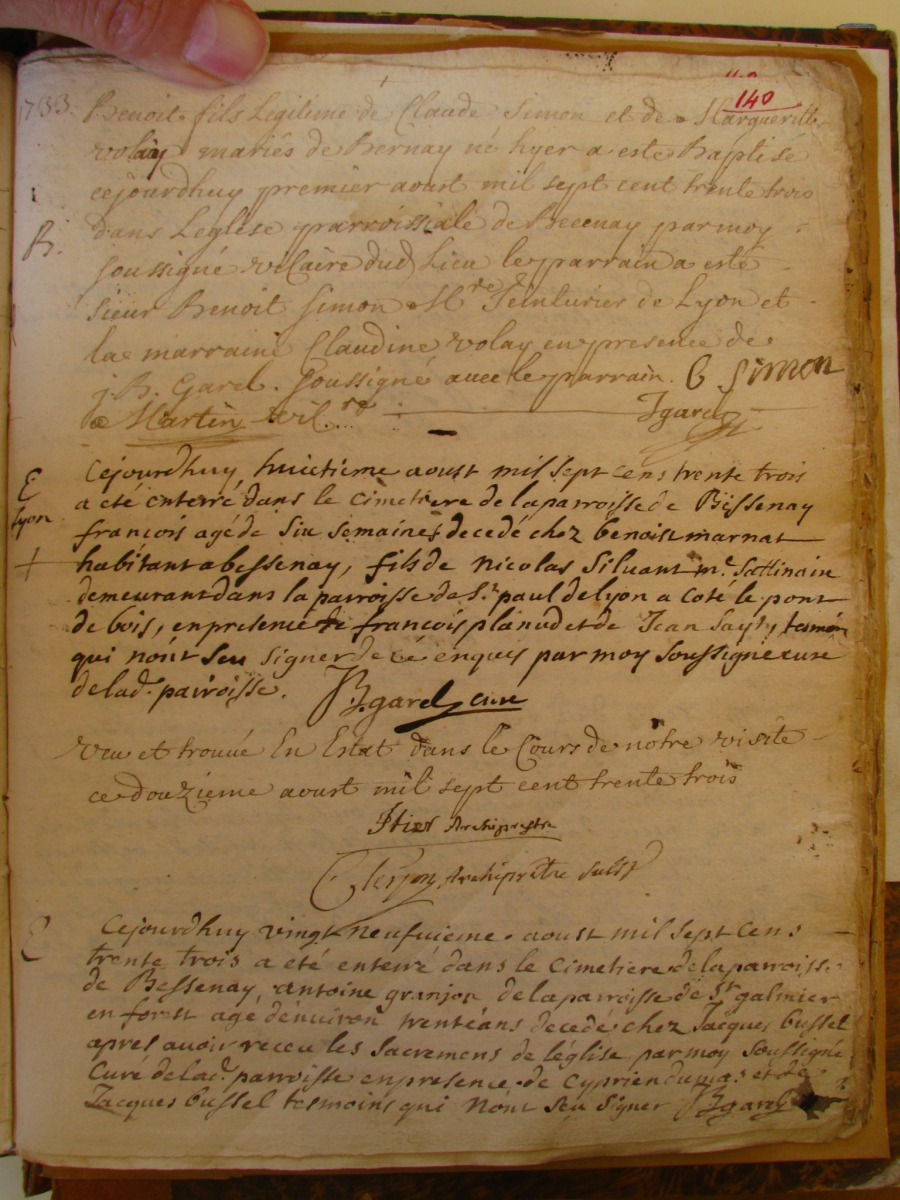 140
1733. Benoit fils Legiteme de Claude Simon et de Margueritte
volay mariés de Bernay né hyer a esté Baptisé
cejourdhuy premier aoust mil sept cent trente trois
B. dans Leglise parroissiale de Becenay par moy
soussigné vicaire dud Lieu le parrain a esté
sieur Benoit Simon Mre Teinturier de Lyon et
la marraine Claudine volay en presence de
j. B. Garel. soussigné avec le parrain. B Simon
Martin vic.re Jgarel
E Cejourdhuy huictieme aoust mil sept cens trente trois
Lyon a été enterré dans le cimetiere de la parroisse de Bessenay
françois agé de six semaines decedé chez benoist marnat
+ habitant a bessenay, fils de nicolas Siluant m.e Sattinaire
demeurant dans la parroisse de St paul de lyon a coté le pont
de bois, en presence de françois planud et de Jean Sayty tesmoins
qui n'ont seu signer de ce enquis par moy soussigné curé
de lad. parroisse. JBgarel curé
veu et trouué En Estat dans le Cours de notre visite
ce douzieme aoust mil sept cent trente trois
Archiprestre
Archiprêtre
E Cejourdhuy vingt neufuieme aoust mil sept cens
trente trois a été enterré dans le cimetiere de la parroisse
de Bessenay, antoine granjon de la parroisse de St galmier
en forest agé d'enuiron trente ans decedé chez Jacques bussel
apres auoir receu les sacremens de l'église par moy soussigné
Curé de lad. parroisse en presence de cyprien dumas et de
Jacques bussel tesmoins qui n'ont seu signer JBgarel